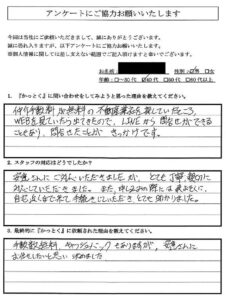 アンケートにご協力お願いいたします
今回は当社にご依頼いただきまして、誠にありがとうございます。
誠に恐れ入りますが、以下アンケートにご協力お願いいたします。
※個人情報に関しては差し支えない範囲でご記入頂けますと幸いでございます。
お名前
性別
男
□女
年齢
□~30代
40代
□50代
□60代
□60代以上
1.『かっとく』に問い合わせをしてみようと思った理由を教えてください。
仲介手数料が無料の不動産業者を探していたところ、
WEBを見ていたら出てきたので、LINEから問合せができる
こともあり、問合せたことがきっかけです。
2. スタッフの対応はどうでしたか?
さんにご対応いただきましたが、とてもご丁寧、親切に
対応していただきました。また、申し込みの際には
自宅近くまで来て手続きしていただきとても助かりました。
3. 最終的に『かっとく』に依頼された理由を教えてください。
手数料無料、キャッシュバックもありますが、
さんに
お任せしたいと思い決めました